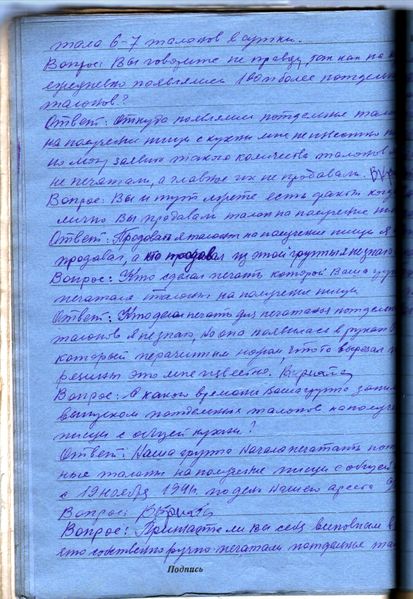 тала 6-7 талонов в сутки.
Вопрос: Вы говорите не правду, так как на к
ежедневно появлялись 100 и более поддельн
талонов?
Ответ: Откуда появлялись поддельные тало
на получение пищи с кухни мне не известно
но могу заявить такого количества талонов
не печатали, а главное их не продавали.
Вопрос: Вы и тут врете есть факты когд
лично Вы продавали талон на получение
Ответ: Продавал я талоны на получение пищи я
продавал, а кто продавал из этой группы я не знаю
Вопрос: Кто сделал печать которой Ваша гру
печатала талоны на получение пищи
Ответ: Кто делал печать для печатания поддель
талонов я не знаю, но она появилась в руках
который перочинным ножом что то вырезал
резины это мне известно.
Вопрос: С какого времени Ваша группа зани
выпуском поддельных талонов на получе
пищи с общей кухни?
Ответ: Наша группа начала печатать под
ные талоны на получение пищи с общей
с 19 ноября 1941 по день нашего ареста
Вопрос:
Вопрос: Признаете ли Вы себя виновным
что собственноручно печатали поддельные та
Подпись